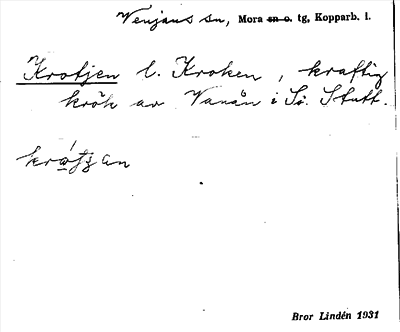 Venjans sn, Mora sn o. tg, Kopparb. l.
Krotjen l. Kroken, kraftig
krök av Vanån i Sö. Stutt.
krⱥ́tʒan
Bror Lindén 1931